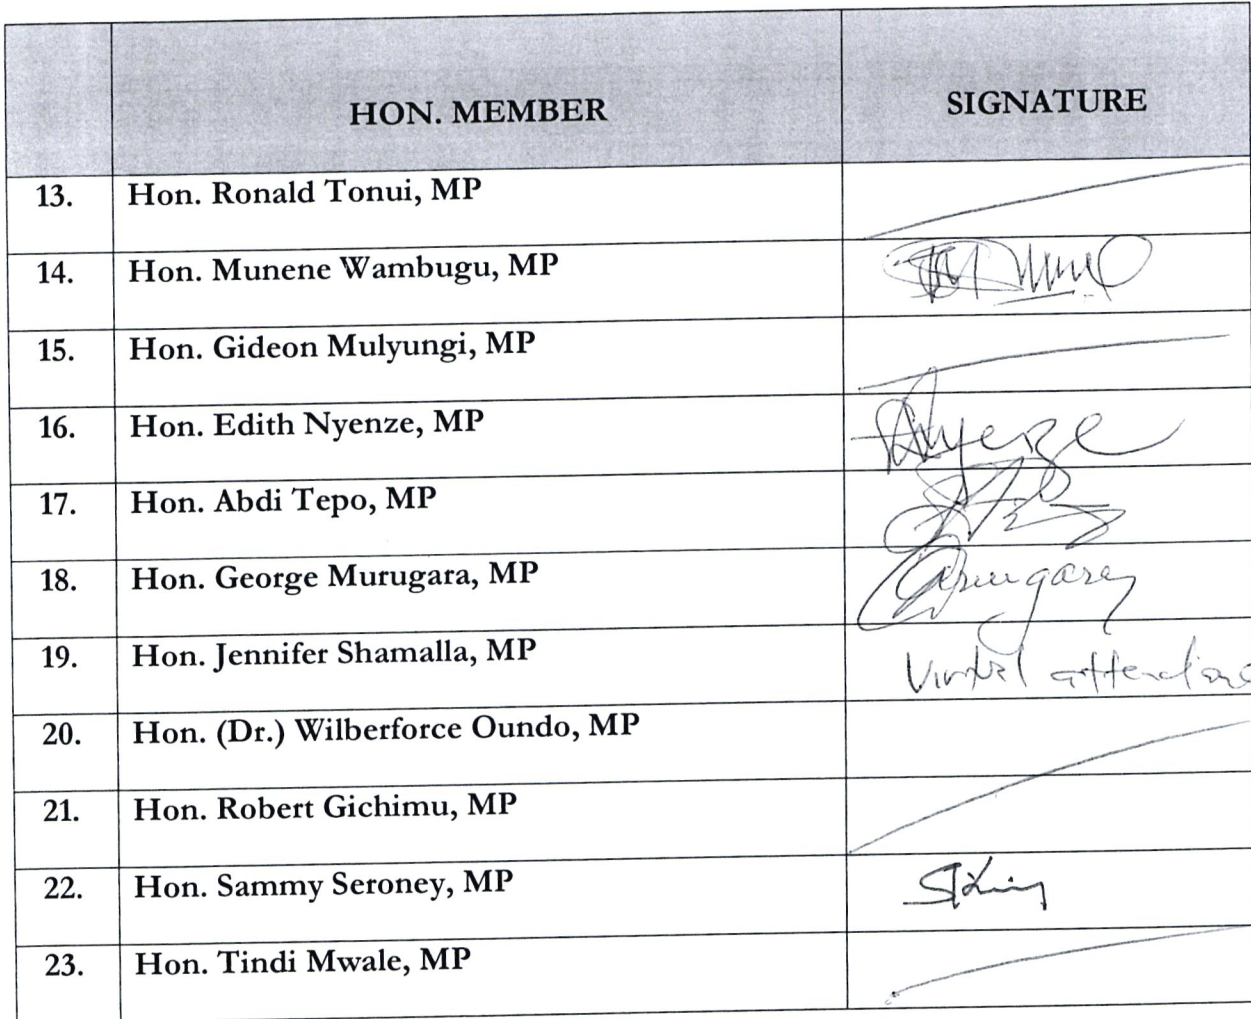 HON. MEMBER SIGNATURE
13. Hon. Ronald Tonui, MP
14. Hon. Munene Wambugu, MP
15. Hon. Gideon Mulyungi, MP
16. Hon. Edith Nyenze, MP Nyenze
17. Hon. Abdi Tepo, MP
18. Hon. George Murugara, MP
19. Hon. Jennifer Shamalla, MP Virtual attendance
20. Hon. (Dr.) Wilberforce Oundo, MP
21. Hon. Robert Gichimu, MP
22. Hon. Sammy Seroney, MP
23. Hon. Tindi Mwale, MP